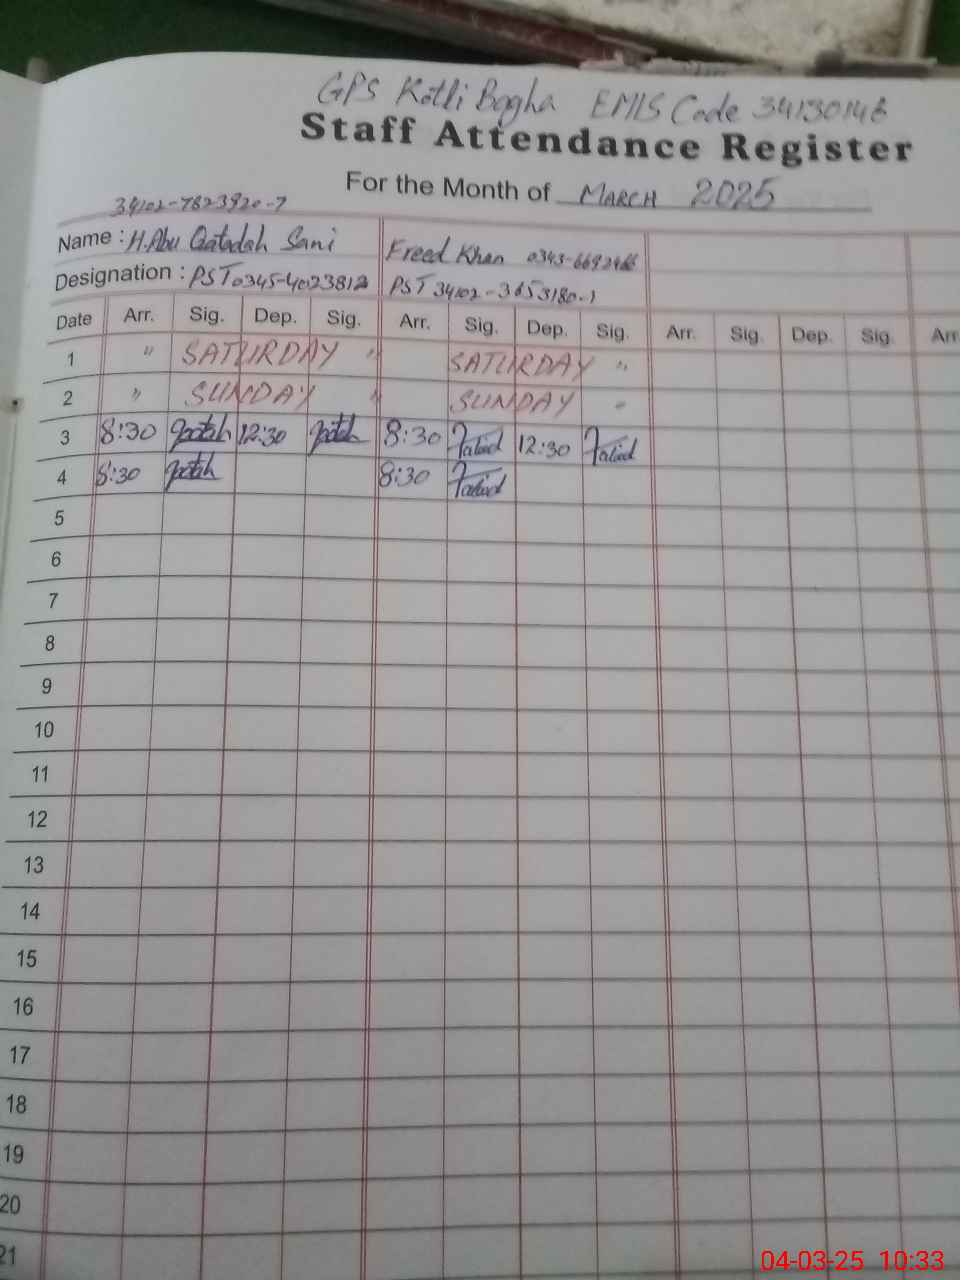 GPS Kotli Bagha EMIS Code 34130146
Staff Attendance Register
For the Month of MARCH 2025
34102-7823920-7
Name : H.Abu Qatadah Sani Freed Khan
Designation : PST 0345-4023812 PST 34102-3653180-1
Date Arr. Sig. Dep. Sig. Arr. Sig. Dep. Sig. Arr. Sig. Dep. Sig. Arr
1 " SATURDAY " SATURDAY "
2 " SUNDAY " SUNDAY "
3 8:30 12:30 8:30 12:30
4 8:30 8:30
5
6
7
8
9
10
11
12
13
14
15
16
17
18
19
20
21
04-03-25 10:33